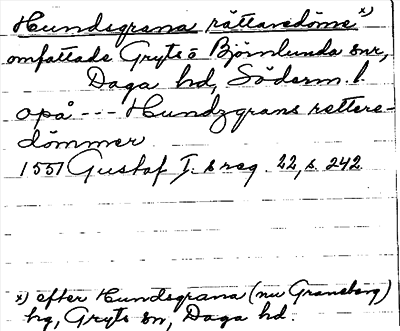 Hundsgrana rättaredöme x)
omfattade Gryts o Björnlunda snr,
Daga hd, Söderm. l.
opå --- Hundzgrans rettere-
dömmer
1551 Gustaf I:s reg. 22, s. 242
x) efter Hundsgrana (nu Graneberg)
hg, Gryts sn, Daga hd.